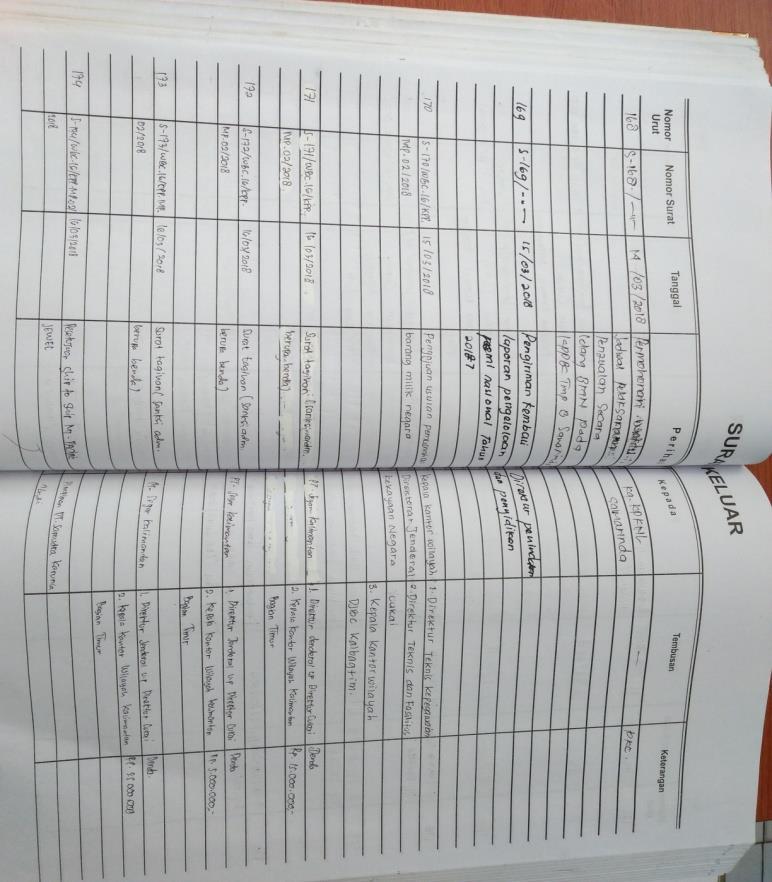 SURAT KELUAR
Nomor Urut Nomor Surat Tanggal Perihal Kepada Tembusan Keterangan
168 S-168/ 14/03/2018 Permohonan Ka. KPKNL PKC.
Jadwal Pelaksanaan Samarinda
Penjualan Secara
Lelang BMN pada
KPPBC TMP B
169 S-169/--- 15/03/2018 Pengiriman kembali Direktur penindakan
laporan pengelolaan dan penyidikan
nasional Tahun
2017
170 S-170/WBC.16/KPP. 15/03/2018 Pengajuan usulan Kepala kantor wilayah 1. Direktur Teknis kepabeanan
MP.02/2018 barang milik negara Direktorat Jenderal 2. Direktur Teknis dan Fasilitas
kekayaan Negara cukai
3. Kepala Kantor wilayah
DJBC Kalbagtim.
171 S-171/WBC.16/KPP. 16/03/2018 Surat tagihan PT. Kalimantan 1. Direktur Jenderal up Direktur Cukai Denda
MP.02/2018 berupa benda) 2. Kepala Kantor Wilayah Kalimantan Rp. 15.000.000,-
Bagian Timur
172 S-172/WBC.16/KPP. 16/03/2018 Surat tagihan (Sanksi adm. PT. Kalimantan 1. Direktur Jenderal up Direktur Cukai Denda
MP.02/2018 berupa benda) 2. Kepala Kantor Wilayah Kalimantan Rp. 5.000.000,-
Bagian Timur
173 S-173/WBC.16/KPP.MP. 16/03/2018 Surat tagihan (Sanksi adm. PT. Kalimantan 1. Direktur Jenderal up Direktur Cukai Denda
02/2018 berupa benda) 2. Kepala Kantor Wilayah Kalimantan Rp.
Bagian Timur
174 16/03/2018 Persetujuan ship to ship Pimpinan PT. Samudra
2018 JEWEL